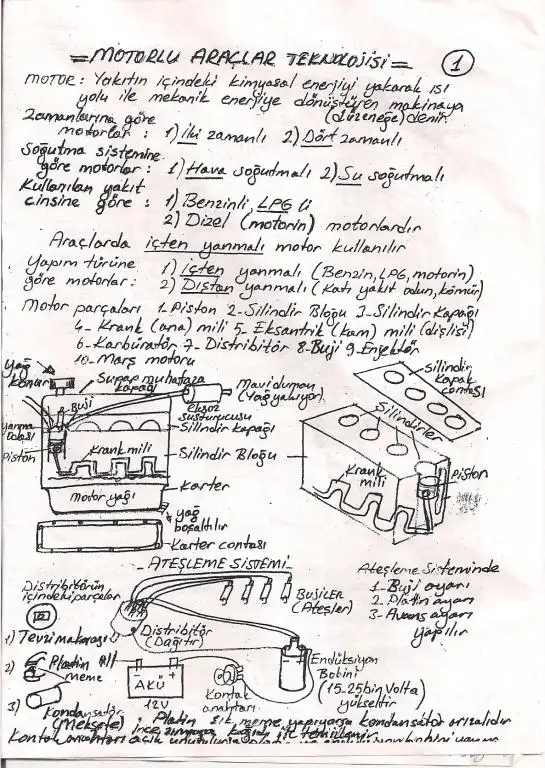 = MOTORLU ARAÇLAR TEKNOLOJİSİ =
1
MOTOR : Yakıtın içindeki kimyasal enerjiyi yakarak ısı
yolu ile mekanik enerjiye dönüştüren makinaya
(düzeneğe) denir
Zamanlarına göre
motorlar : 1) İki zamanlı 2) Dört zamanlı
Soğutma sistemine
göre motorlar : 1) Hava soğutmalı 2) Su soğutmalı
Kullanılan yakıt
cinsine göre : 1) Benzinli, LPG li
2) Dizel (motorin) motorlardır
Araçlarda içten yanmalı motor kullanılır
Yapım türüne 1) İçten yanmalı (Benzin, LPG, motorin)
göre motorlar : 2) Dıştan yanmalı (Katı yakıt odun, kömür)
Motor parçaları 1-Piston 2-Silindir Bloğu 3-Silindir Kapağı
4- Krank (ana) mili 5- Eksantrik (kam) mili (dişlisi)
6-Karbüratör 7- Distribitör 8-Buji 9-Enjektör
10-Marş motoru
yağ
konur
Supap muhafaza
kapağı
Mavi duman
(Yağ yakıyor)
Buji
egsoz
susturucusu
Silindir kapağı
yanma
odası
Piston
Krank mili
Silindir Bloğu
motor yağı
Karter
yağ
boşaltılır
Karter contası
Silindir
kapak
contası
Silindirler
Krank
mili
Piston
- ATEŞLEME SİSTEMİ -
Distribitörün
içindeki parçalar
BUJİLER
(Ateşler)
Ateşleme Sisteminde
1-Buji ayarı
2-Platin ayarı
3-Avans ayarı
yapılır
1) Tevzi makarası
Distribitör
(Dağıtır)
2)
Platin
meme
AKÜ
12V
Kontak
anahtarı
Endüksiyon
Bobini
(15-25 bin Volta)
yükseltir
3)
Kondansatör
(Meksefe) : Platin sık meme yapıyorsa kondansatör arızalıdır
ince zımpara kağıdı ile temizlenir
Kontak anahtarı açık unutulursa